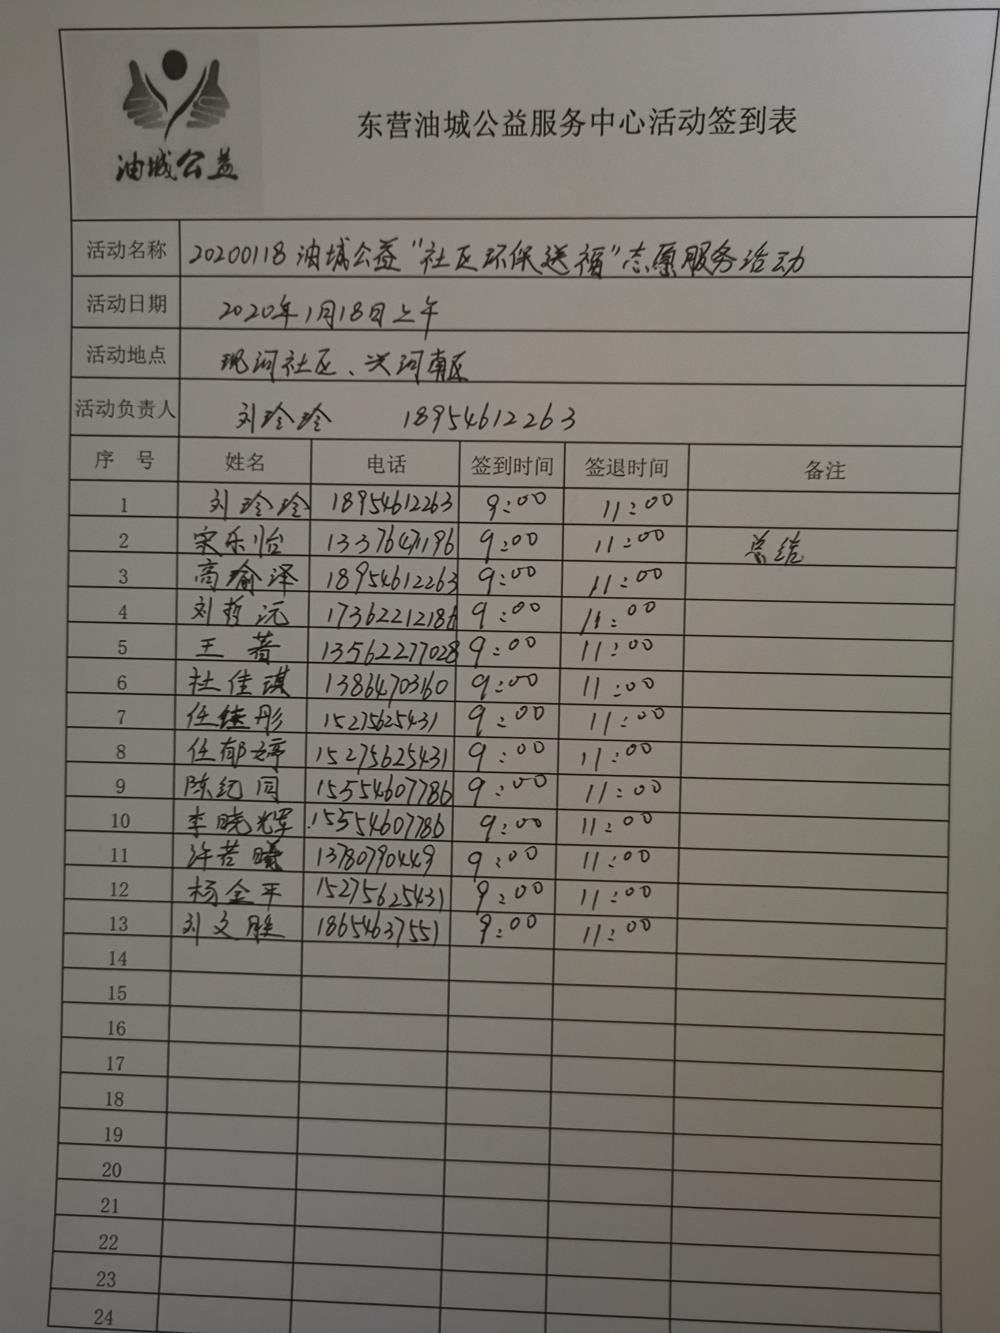 油城公益
东营油城公益服务中心活动签到表
活动名称 20200118油城公益"社区环保送福"志愿服务活动
活动日期 2020年1月18日上午
活动地点 现河社区、兴河南区
活动负责人 刘玲玲 18954612263
序 号 姓名 电话 签到时间 签退时间 备注
1 刘玲玲 18954612263 9:00 11:00
2 宋乐怡 13376471196 9:00 11:00 总结
3 高瑜泽 18954612263 9:00 11:00
4 刘哲沅 9:00 11:00
5 王 13562277028 9:00 11:00
6 杜佳琪 13864703160 9:00 11:00
7 任 彤 15275625431 9:00 11:00
8 任郁婷 15275625431 9:00 11:00
9 陈纪同 15554607786 9:00 11:00
10 李晓辉 15554607786 9:00 11:00
11 许若曦 13780790449 9:00 11:00
12 杨金平 15275625431 9:00 11:00
13 刘文胜 18654637551 9:00 11:00
14
15
16
17
18
19
20
21
22
23
24